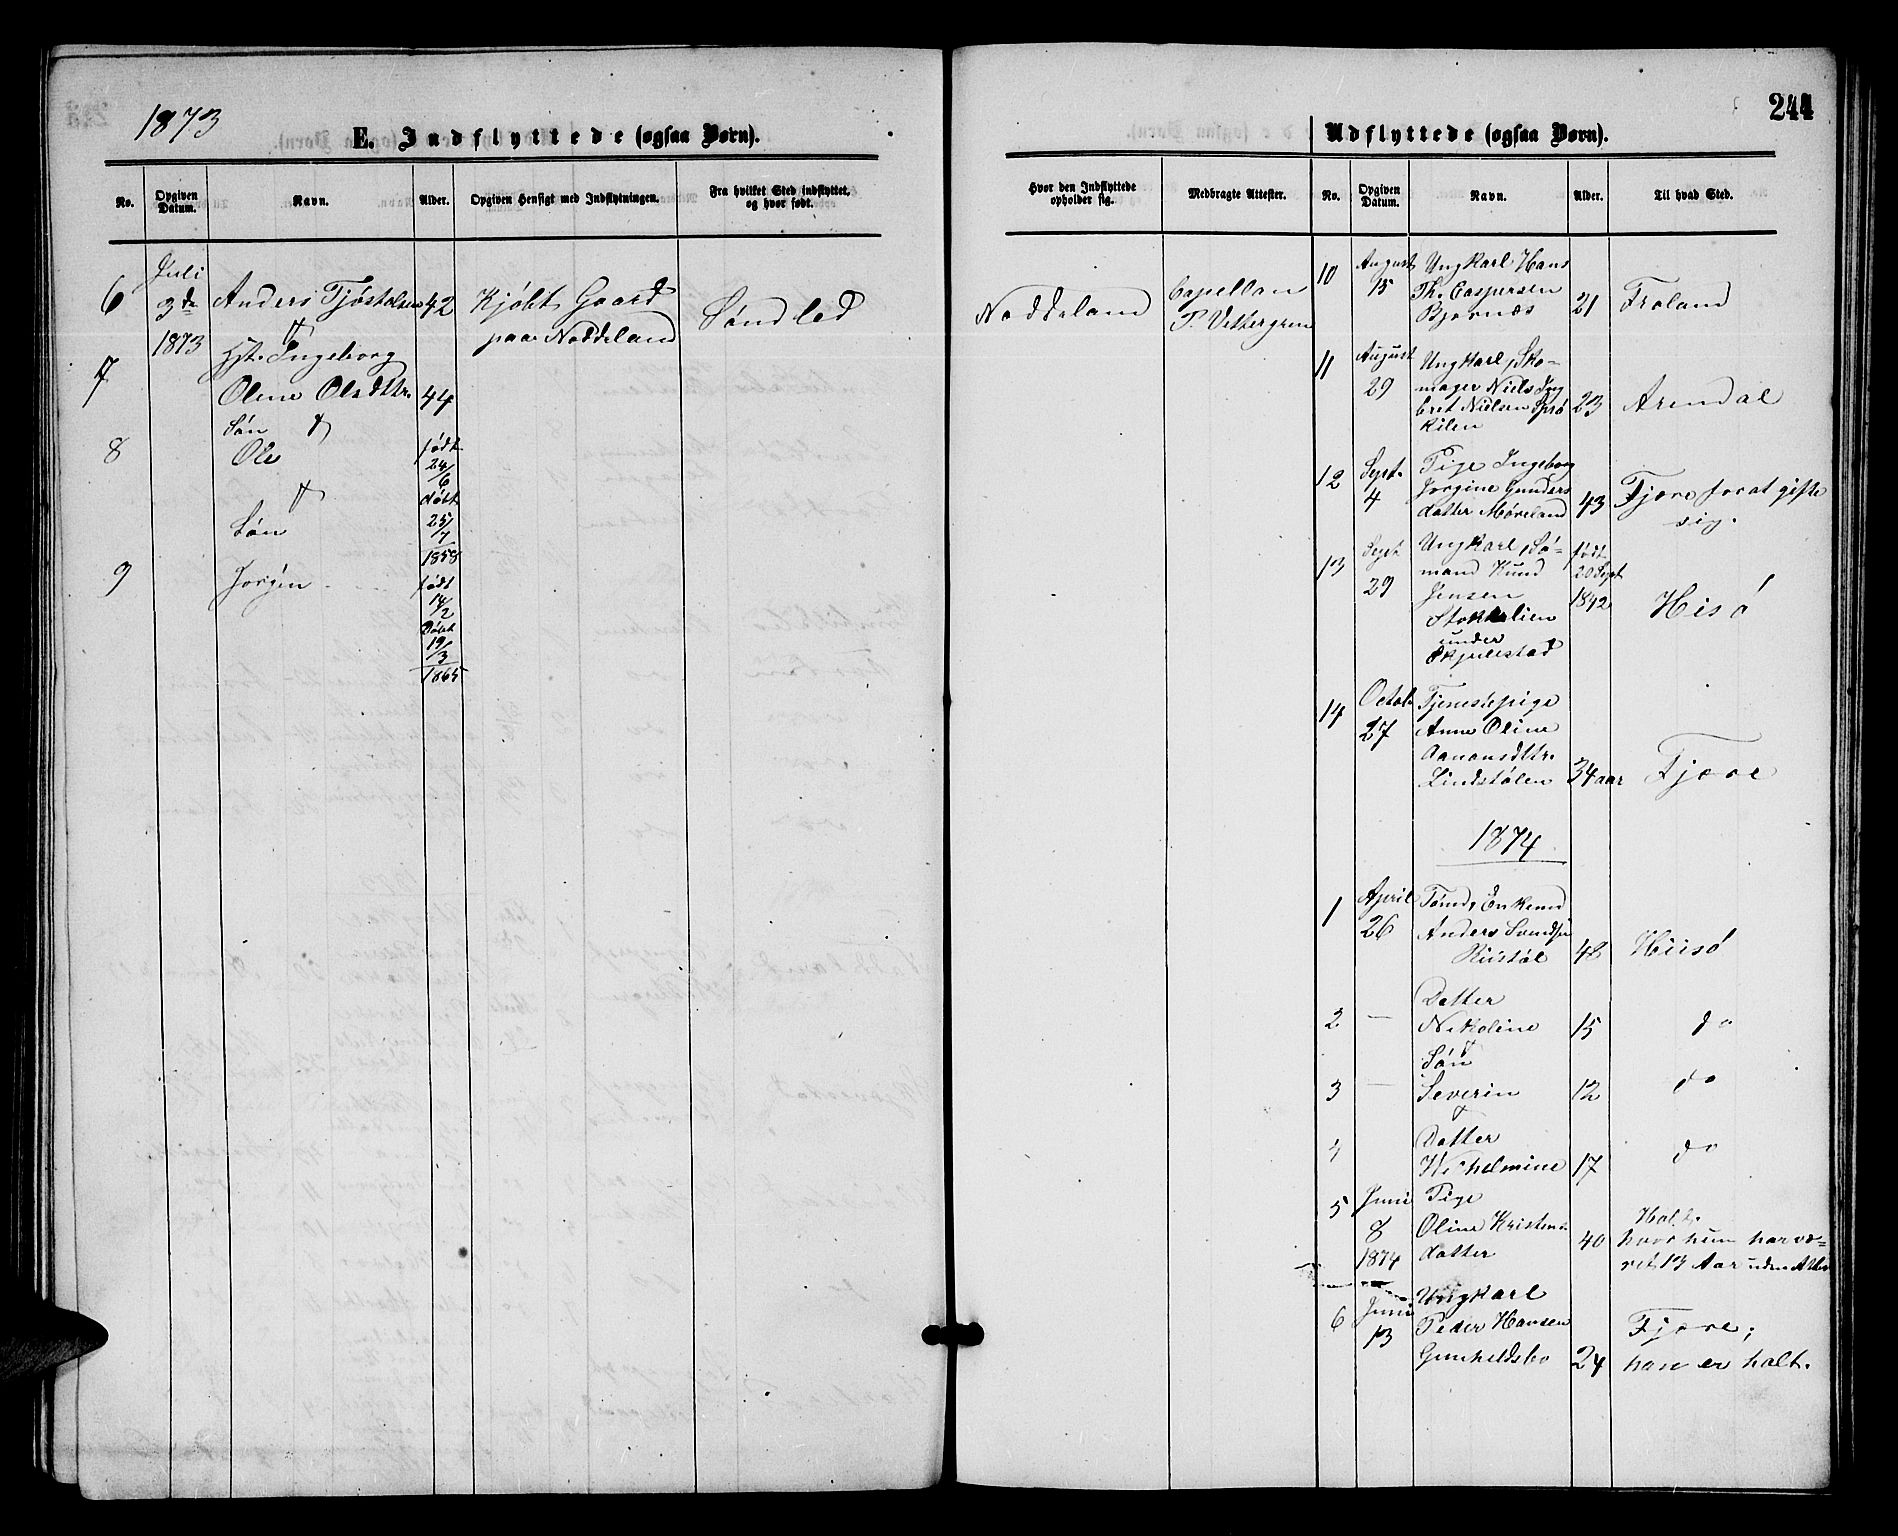 1873
E. Indflyttede (ogsaa Børn).
No.
Opgiven Datum.
Navn.
Alder.
Opgiven Hensigt med Indflytningen.
Fra hvilket Sted indflyttet, og hvor født.
6
Juli
3de
1873
Anders Tjøstolsen
42
Kjøbt Gaard
paa Noddeland
Søndled
7
Hst. Ingeborg
Oline Olsdttr.
44
8
Søn
Ole
født
24/6
døbt
25/7
1858
9
Søn
Jørgen
født
14/2
Døbt
19/3
1865
244
Udflyttede (ogsaa Børn).
Hvor den Indflyttede opholder sig.
Medbragte Attester.
No.
Opgiven Datum.
Navn.
Alder.
Til hvad Sted.
Noddeland
Capellan
P. Vettergren
10
August
15
Ungkarl Hans
Th. Caspersen
Bjornæs
21
Froland
11
August
29
Ungkarl, Sko-
mager Niels Ing
bret Nielsen Sprø
kilen
23
Arendal
12
Sept.
4
Pige Ingeborg
Jorgine Gunders
datter Møreland
43
Fjære forat gifte
sig.
13
Sept
29
Ungkarl, Sø-
mand Knud
Jensen
Stokkelien
under
Skjulestad
født
20 Sept
1842
Hisø
14
Octob.
27
Tjenestepige
Anne Oline
Aanonsdttr.
Lindstølen
34 aar
Fjære
1874
1
April
26
Tømd, Enkemd
Anders Svendsen
Riistøl
48
Hiisø
2
—
Datter
Nikoline
15
do
3
—
Søn
Severin
12
do
4
Datter
Wilhelmine
17
do
5
Juni
8
1874
Pige
Oline Kristens
datter
40
Holt,
hvor hun har væ-
ret 13 Aar uden Attest
6
Juni
13
Ungkarl
Peder Hansen
Gunheldsbo
24
Fjære;
han er halt.